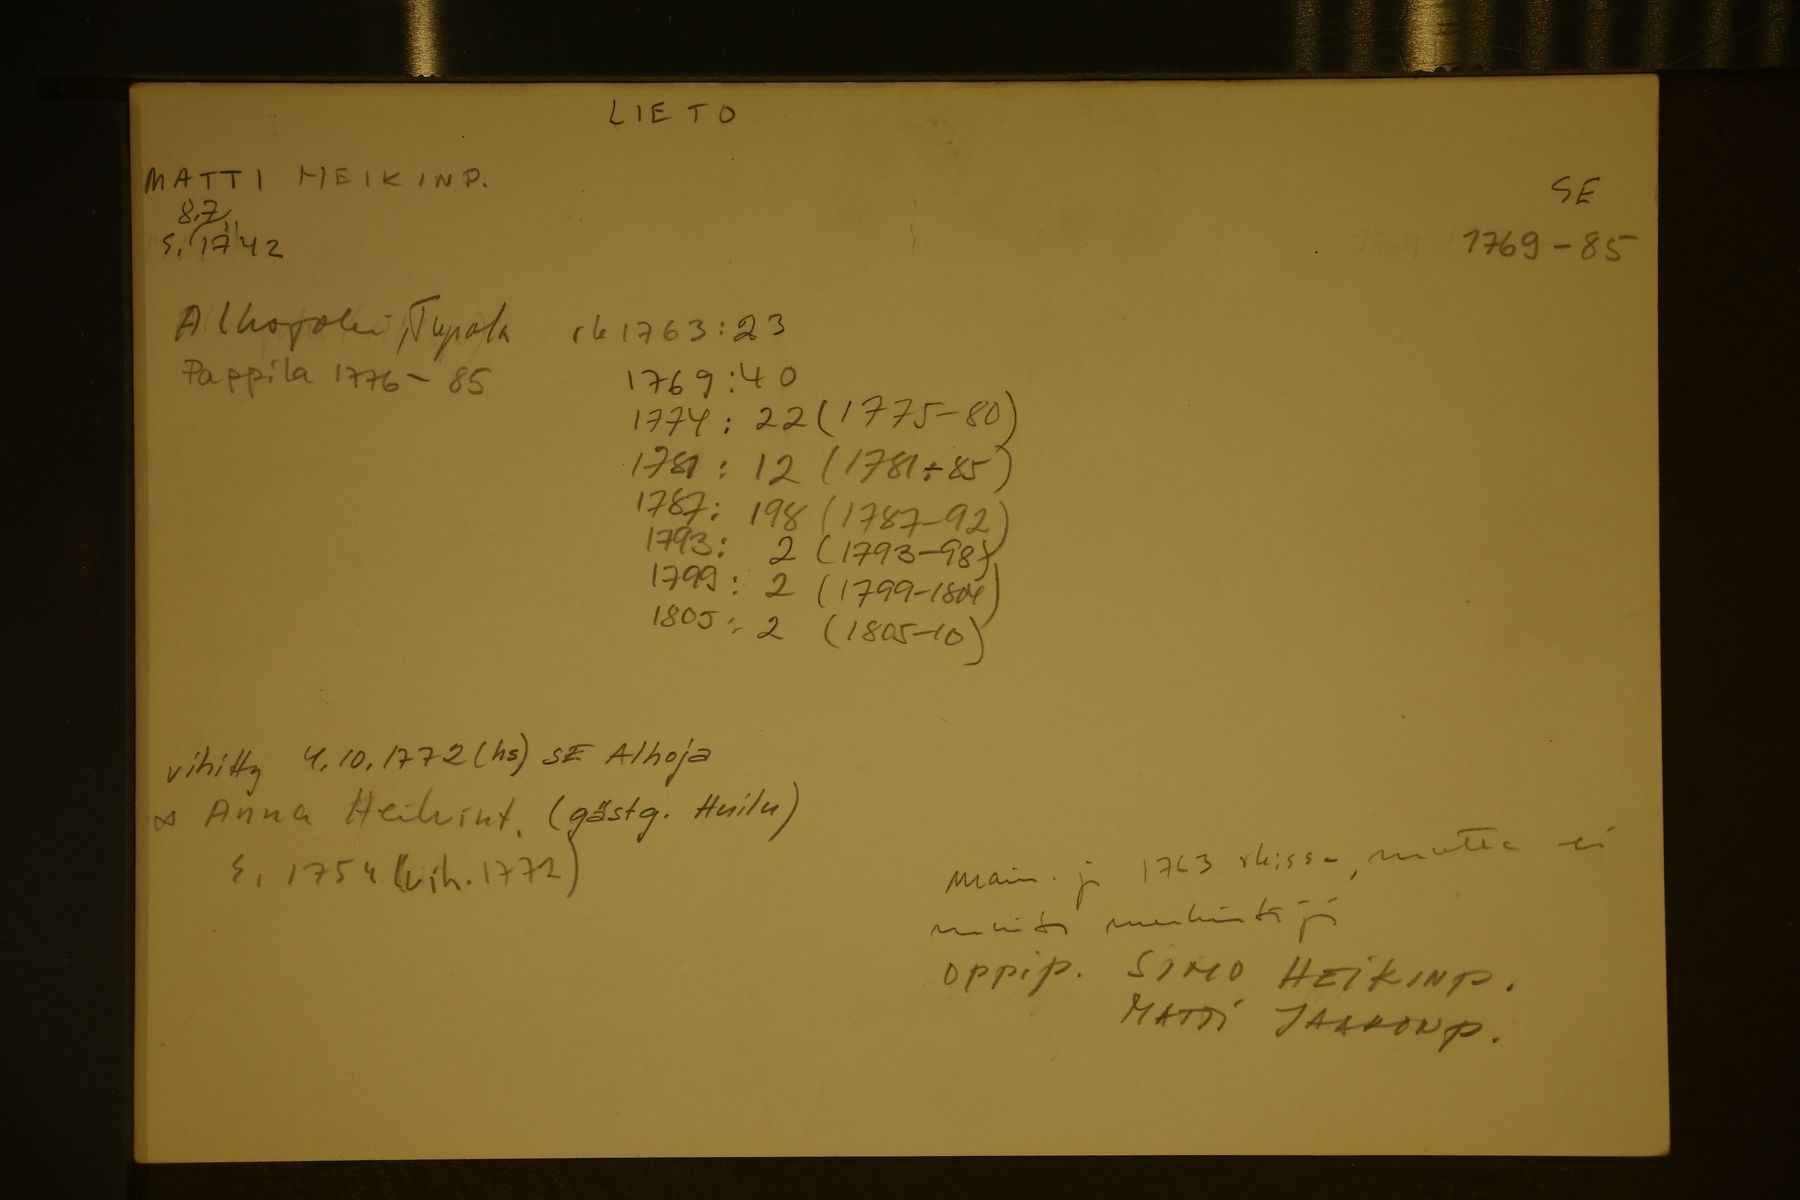 LIETO
MATTI HEIKINP.
SE
8.7.
s. 1742
1769-85
Alhojoki, Tupola rk 1763:23
Pappila 1776-85
1769:40
1774: 22 (1775-80)
1781: 12 (1781-85)
1787: 198 (1787-92)
1793: 2 (1793-98)
1799: 2 (1799-1804)
1805: 2 (1805-10)
vihitty 4.10.1772 (hs) SE Alhoja
∞ Anna Heikint. (gästg. Huilu)
s. 1754 (vih. 1772)
main. jo 1763 rkissa, mutta ei
muita merkintöjä
oppip. SIMO HEIKINP.
MATTI JAAKONP.